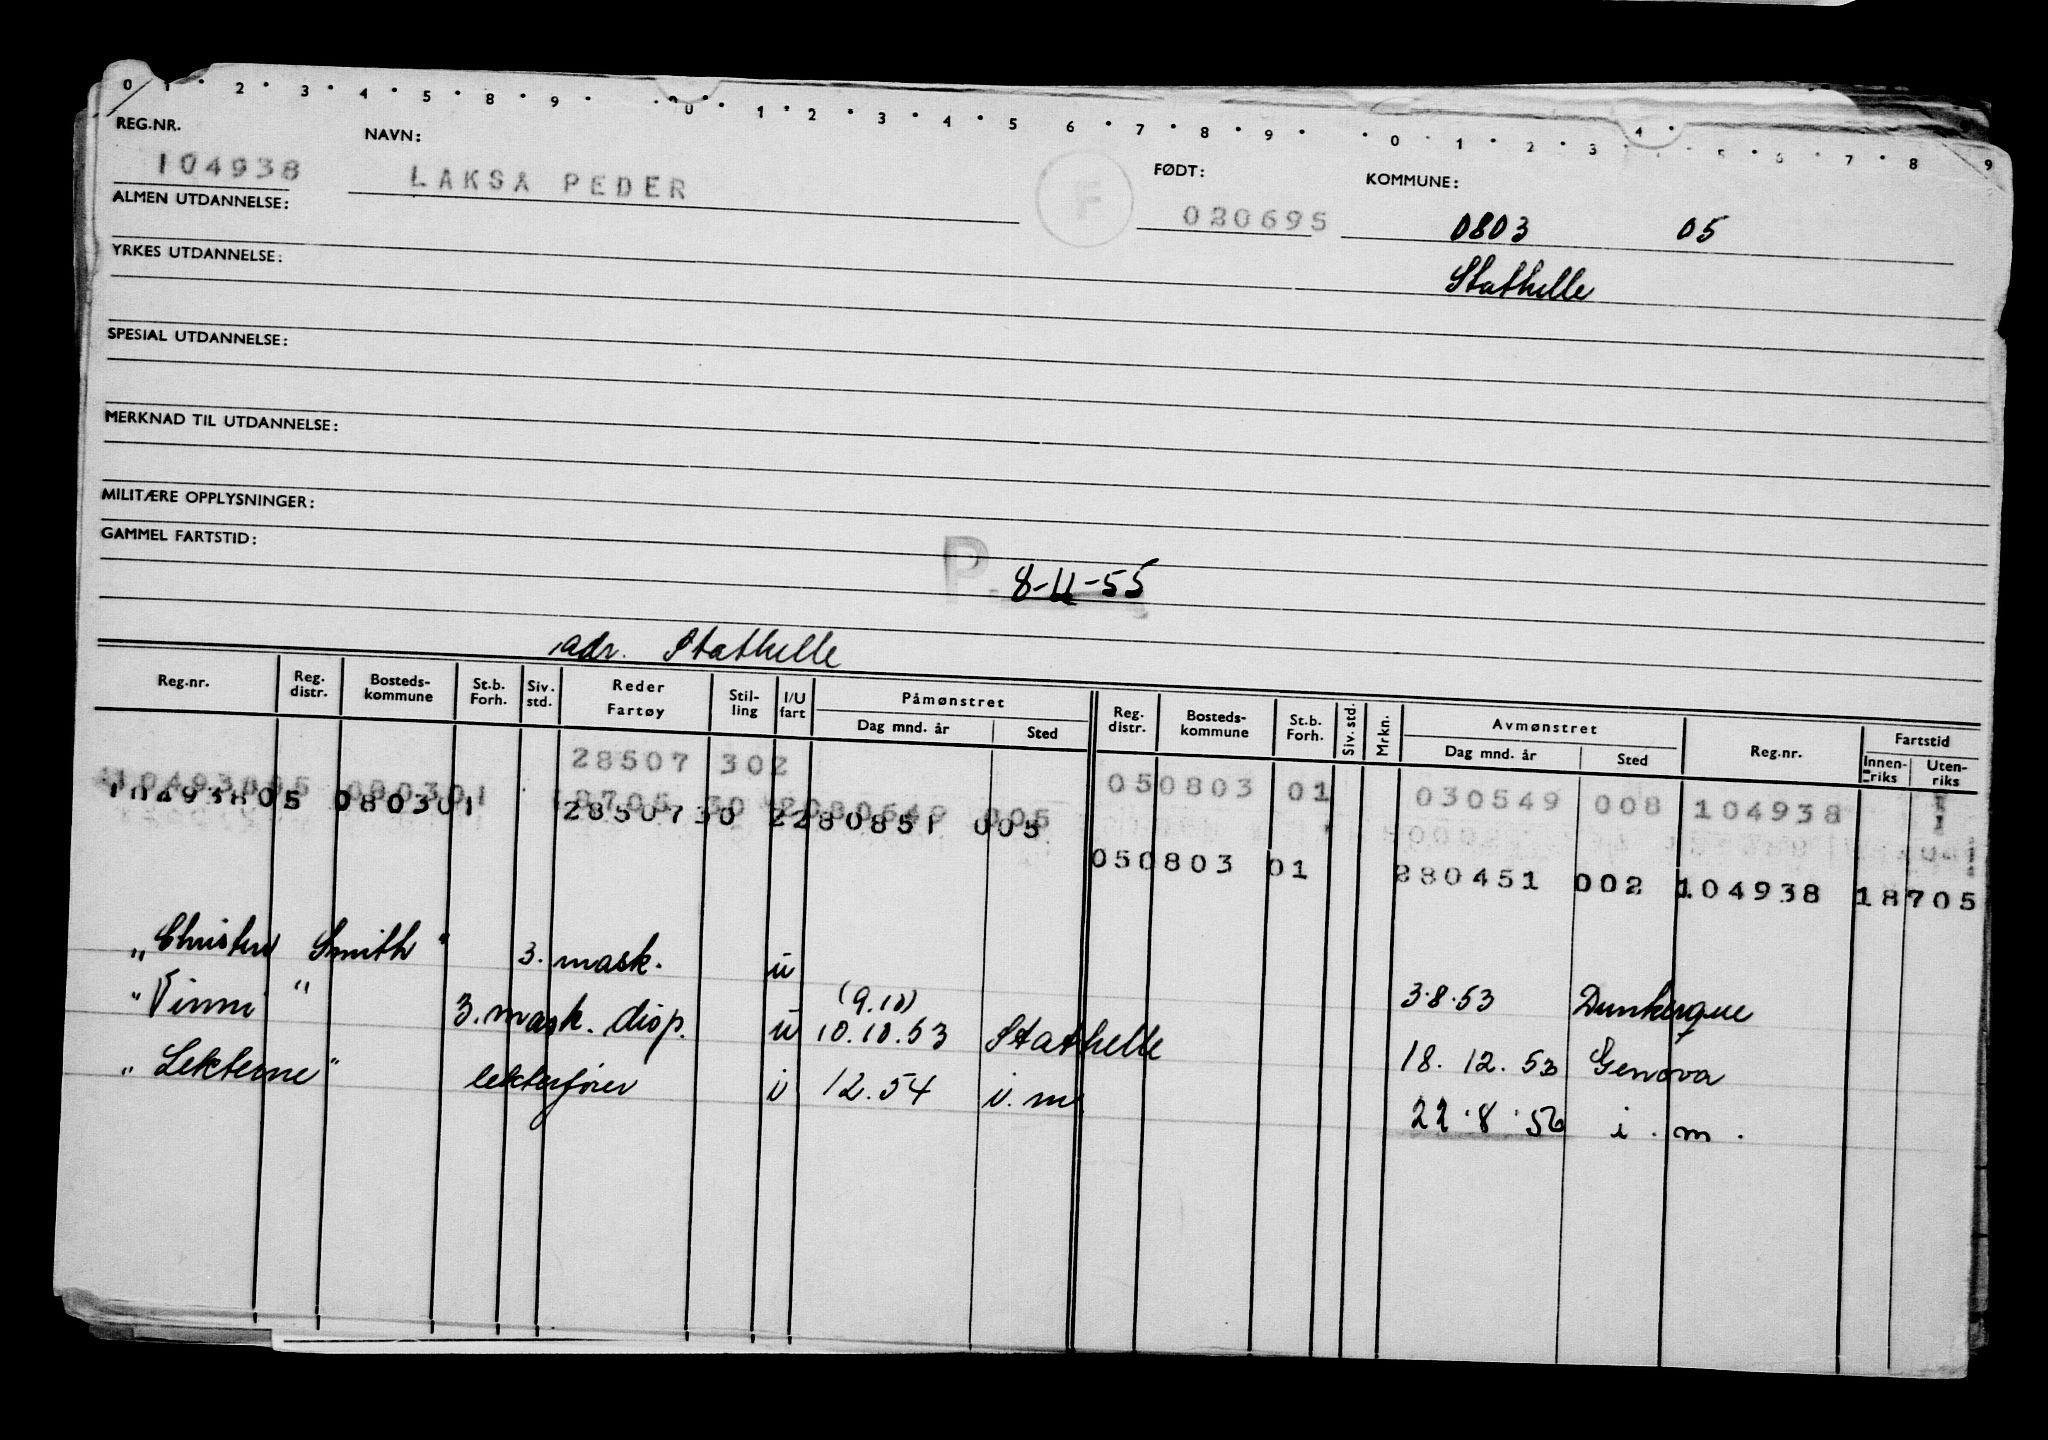 0 1 2 3 4 5 8 9 0 1 2 3 4 5 6 7 8 9 0 1 2 3 4 5 6 7 8 9
REG.NR. NAVN: FØDT: KOMMUNE:
104938 LAKSA PEDER F 020695 0803 05
ALMEN UTDANNELSE:
Stathelle
YRKES UTDANNELSE:
SPESIAL UTDANNELSE:
MERKNAD TIL UTDANNELSE:
MILITÆRE OPPLYSNINGER:
GAMMEL FARTSTID:
P. 8-11-55
adr. Stathelle
Reg.nr. Reg. distr. Bosteds-kommune St.b. Forh. Siv. std. Reder Fartøy Stil-ling I/U fart Påmønstret Dag mnd. år Sted Reg. distr. Bosteds-kommune St.b. Forh. Siv. std. Mrkn. Avmønstret Dag mnd. år Sted Reg.nr. Fartstid Innen-riks Uten-riks
28507 302
10493805 080301 18705 30 2 080649 005 050803 01 030549 008 104938
10493805 080301 2850730 2280851 005
050803 01 280451 002 104938 18705
"Christen Smith" 3. mask. u 3.8.53 Dunkerque
"Vinni" 3. mask. disp. u (9.10) 10.10.53 Stathelle 18.12.53 Genova
"Lekterne" lekterfører i 12.54 i.m. 22.8.56 i.m.